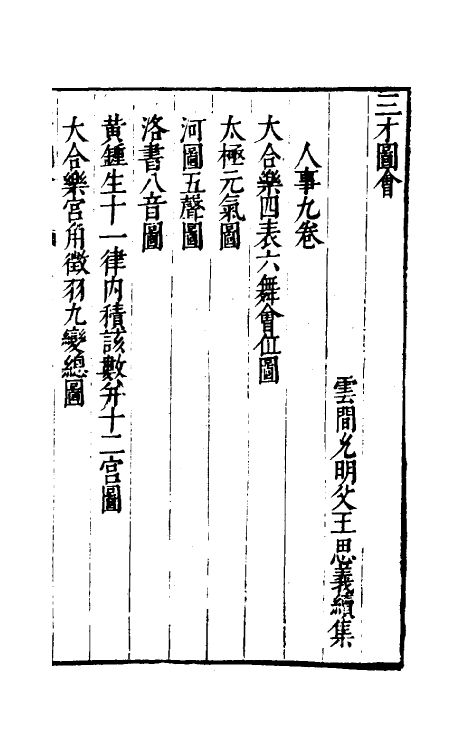 三才圖會
雲間允明父王思義續集
人事九卷
大合樂四表六舞會位圖
太極元氣圖
河圖五聲圖
洛書八音圖
黃鍾生十一律内積該數分十二宮圖
大合樂宮角徵羽九變總圖